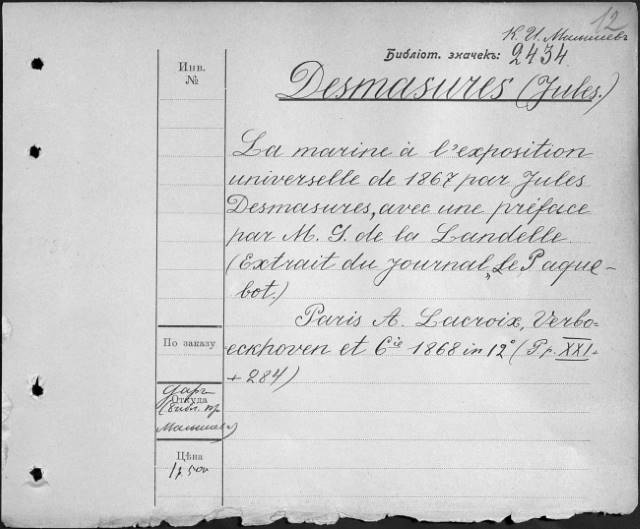 12
К. И. Малышевъ
Библiот. значекъ: 2434
Инв.
№
Desmasures (Jules.)
La marine à l'exposition
universelle de 1867 par Jules
Desmasures, avec une préface
par M. G. de la Landelle
(Extrait du journal „Le Paque-
bot.)
Paris A. Lacroix, Verbo-
eckhoven et Cie 1868 in 12° (Pp. XXI-
+ 284)
По заказу
даръ
Откуда
(библ. пр.
Малышева)
Цѣна